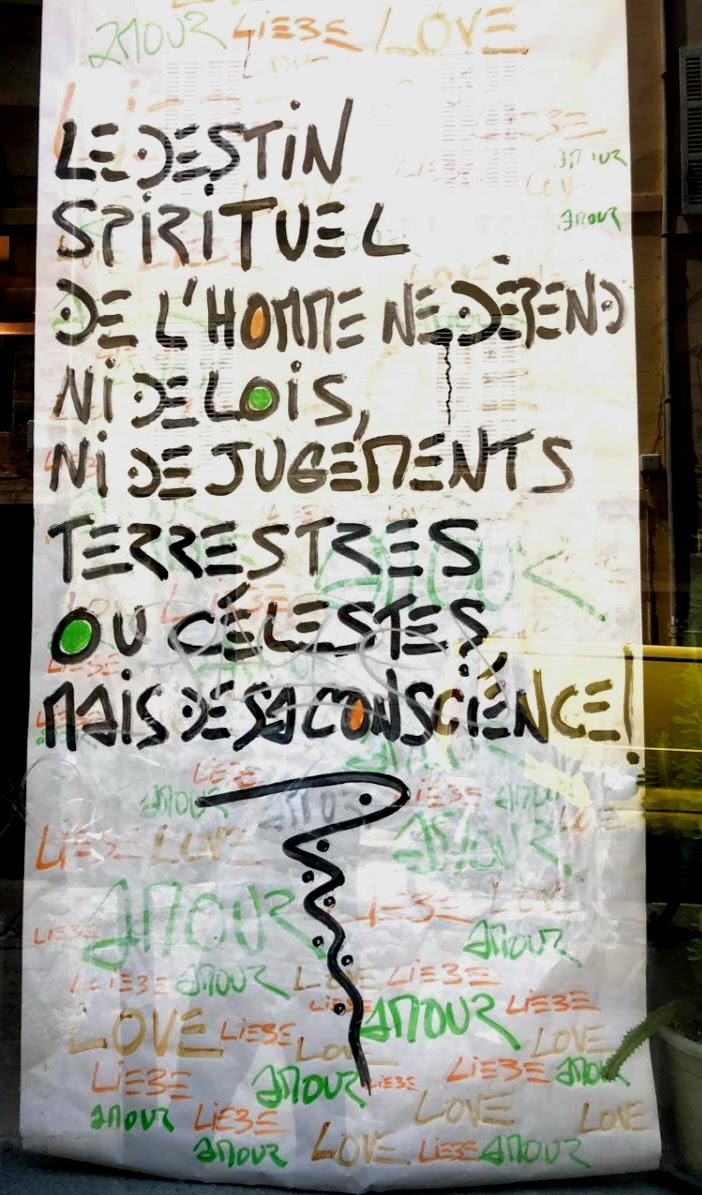 AMOUR LIEBE LOVE
LIEBE
AMOUR
LOVE
AMOUR
LE DESTIN
SPIRITUEL
DE L'HOMME NE DÉPEND
NI DE LOIS,
NI DE JUGEMENTS
TERRESTRES
OU CÉLESTES,
MAIS DE SA CONSCIENCE!
AMOUR
LIEBE
AMOUR LIEBE AMOUR
LIEBE LOVE AMOUR LOVE
AMOUR LIEBE LOVE
LIEBE AMOUR
LIEBE AMOUR LOVE LIEBE
LIEBE AMOUR LIEBE
LOVE LIEBE LOVE LOVE
LIEBE AMOUR LIEBE LIEBE AMOUR
AMOUR LIEBE LOVE LOVE
AMOUR LOVE LIEBE AMOUR